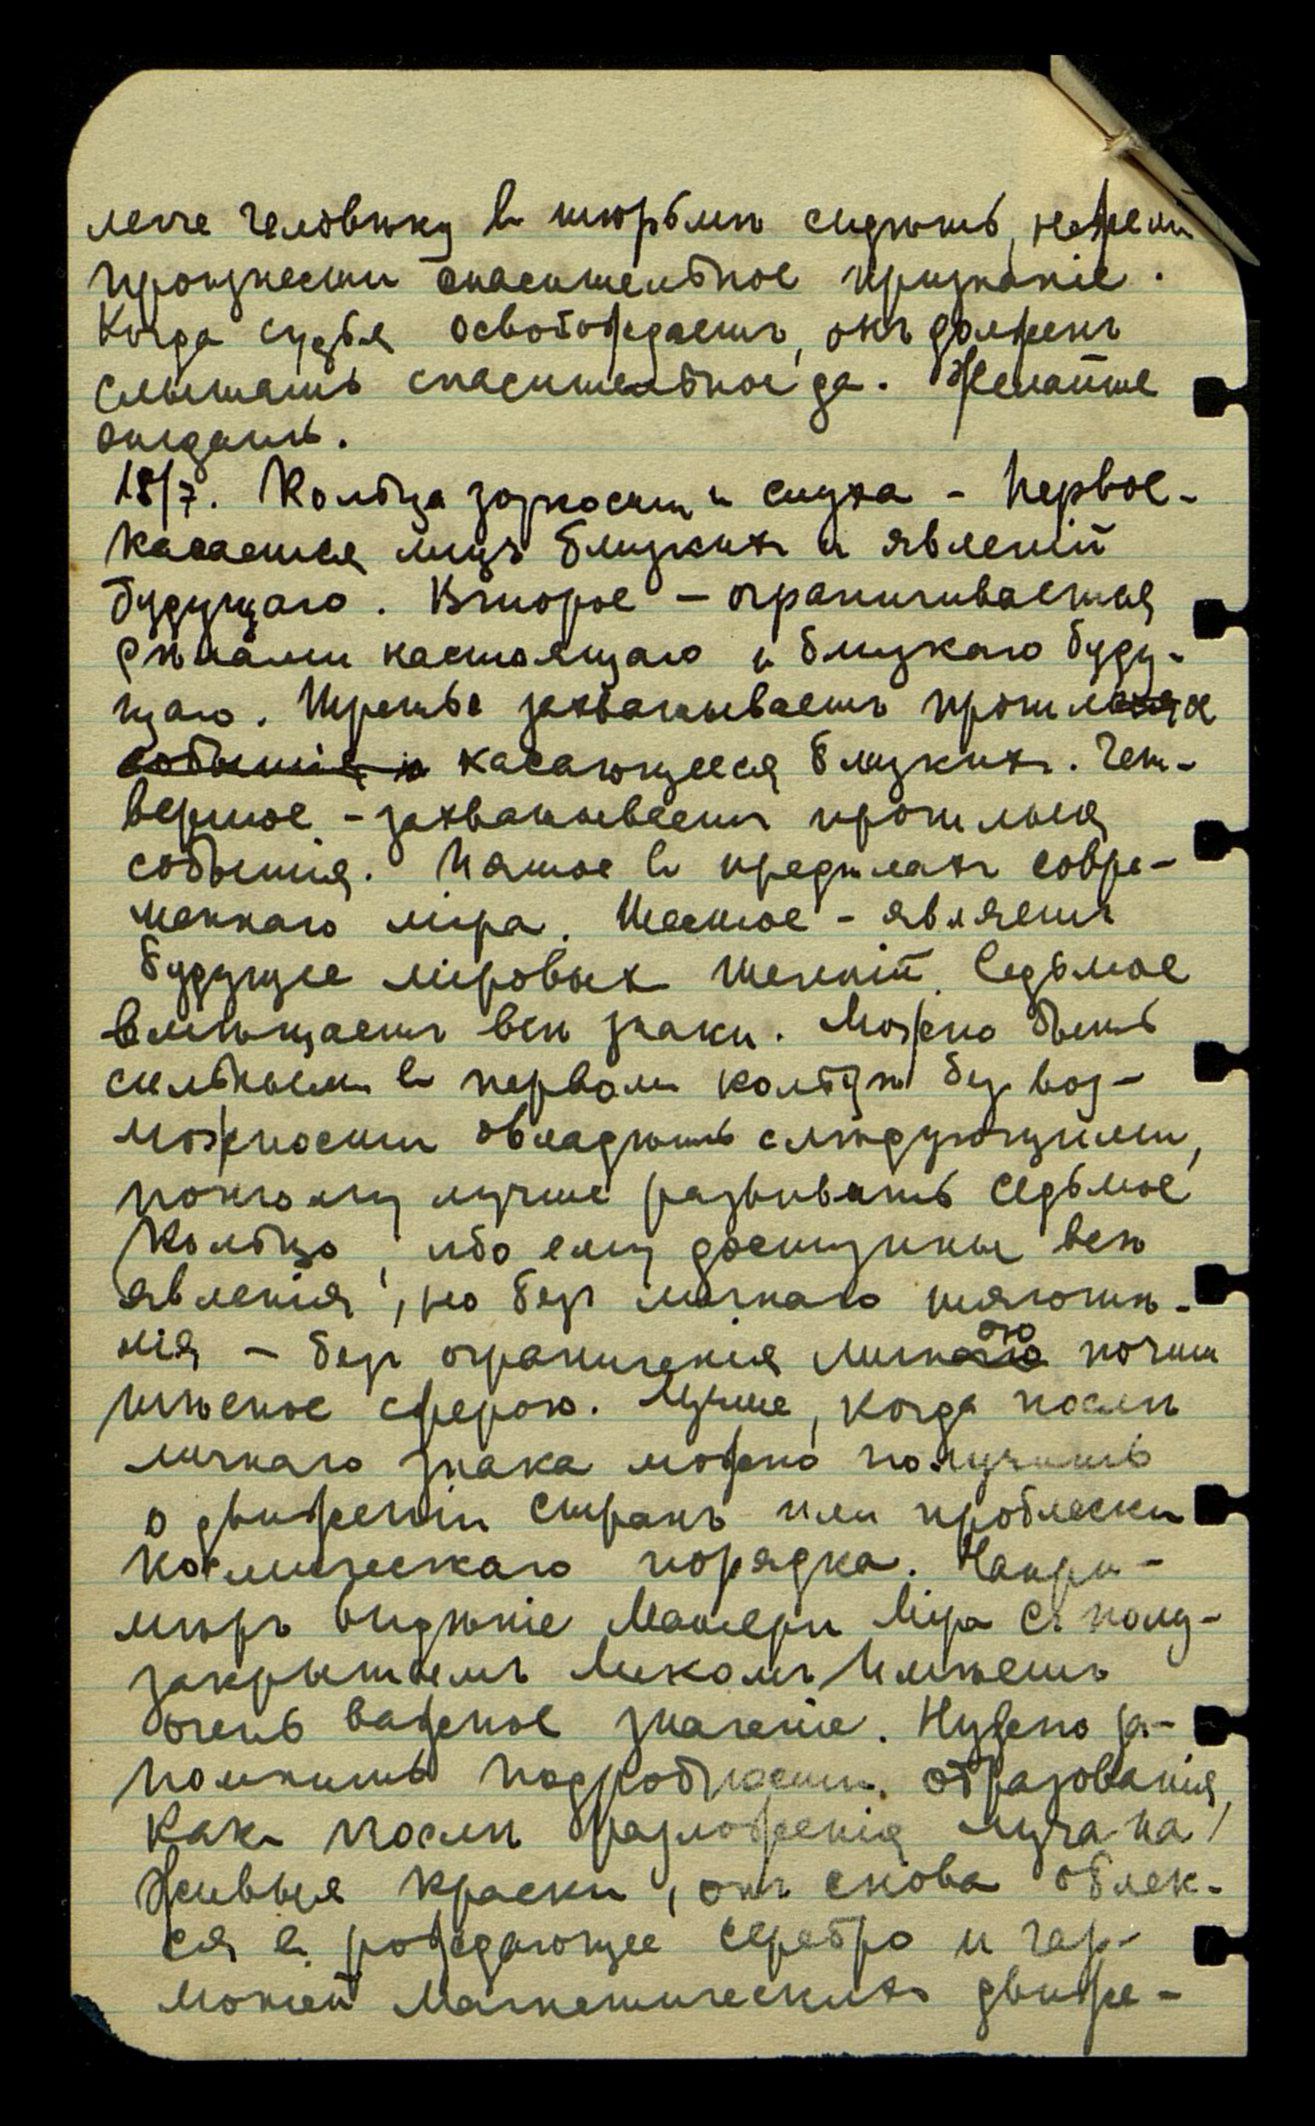 легче человѣку в тюрьмѣ сидѣть, нежели
произнести спасительное признаніе.
Когда судья освобождаетъ, онъ долженъ
слышать спасительное да. Желайте
отдать.
18/7. Кольца зоркости и слуха – Первое –
касается лицъ близких и явленій
будущаго. Второе – ограничивается
дѣлами настоящаго и близкаго буду-
щаго. Третье захватываетъ прошлое
событія и касающееся близких. Чет-
вертое – захватывает прошлыя
событія. Пятое в предѣлах совре-
меннаго міра. Шестое – являет
будущее міровых теченій. Седьмое
вмѣщает всѣ знаки. Можно быть
сильным в первом кольцѣ без воз-
можности овладѣть слѣдующими,
потому лучше развивать седьмое
Кольцо, ибо ему доступны всѣ
явленія, но без личнаго тяготѣ-
нія – без ограниченія личною почти
тѣсное сферою. Лучше, когда послѣ
личнаго знака можно получить
о движеніи странъ или проблески
космическаго порядка. Напри-
мѣръ видѣніе Матери Міра съ полу-
закрытымъ Ликомъ имѣетъ
очень важное значеніе. Нужно за-
помнить подробности образованія,
Как послѣ разложенія луча на
живыя краски, он снова облек-
ся в рождающее серебро и гар-
моніей магнетических движе-